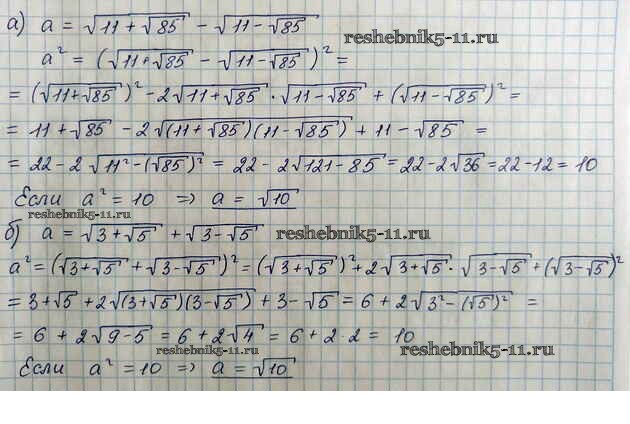 а) a = √(11 + √85) − √(11 − √85)
reshebnik5-11.ru
a² = (√(11+√85) − √(11−√85))² =
= (√(11+√85))² − 2√(11+√85) · √(11−√85) + (√(11−√85))² =
= 11 + √85 − 2√((11+√85)(11−√85)) + 11 − √85 =
= 22 − 2√(11² − (√85)²) = 22 − 2√(121 − 85) = 22 − 2√36 = 22 − 12 = 10
Если a² = 10 => a = √10
reshebnik5-11.ru
б) a = √(3+√5) + √(3−√5) reshebnik5-11.ru
a² = (√(3+√5) + √(3−√5))² = (√(3+√5))² + 2√(3+√5) · √(3−√5) + (√(3−√5))²
= 3+√5 + 2√((3+√5)(3−√5)) + 3−√5 = 6 + 2√(3² − (√5)²) =
= 6 + 2√(9−5) = 6 + 2√4 = 6 + 2·2 = 10
reshebnik5-11.ru reshebnik5-11.ru
Если a² = 10 => a = √10